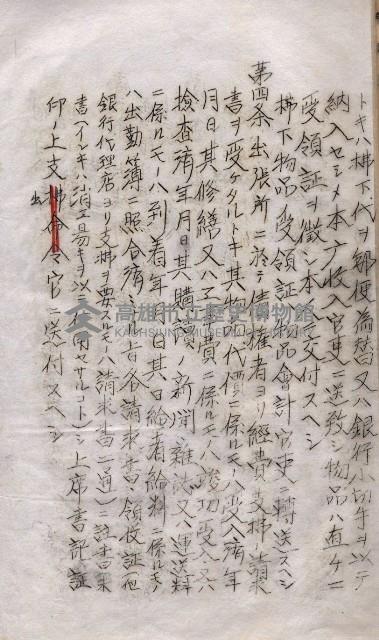 トキハ拂下代ヲ郵便為替又ハ銀行小切手ヲ以テ
納入セシメ本庁收入官吏ニ送致シ物品ハ直チニ
受領証ヲ徴シ本人ニ交付スヘシ
拂下物品ノ受領証ハ物品會計官吏ニ轉送スヘシ
第四条 出張所ニ於テ債權者ヨリ經費支拂ノ請求
書ヲ受ケタルトキ其物件代價ニ係ルモノハ受入濟年
月日其修繕又ハ工事費ニ係ルモノハ竣功受入又ハ
檢査濟年月日其購讀ノ新聞雜誌又ハ運送料
ニ係ルモノハ到着年月日其日給者給料ニ係ルモノ
ハ出勤簿ニ照合濟ミノ上各請求書領收証(他
銀行代理店ヨリ支拂ヲ要スルモノハ請求書二通)ニ証書
書(インキハ消エ易キヲ以テ使用セサルコト)シ上席書記証
印ノ上支出命令官ニ送付スヘシ
高雄市立歷史博物館
KAOHSIUNG MUSEUM OF HISTORY